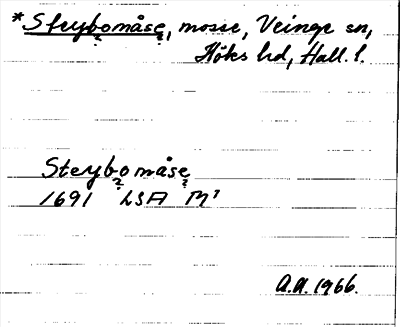 *Steybomåse, mosse, Veinge sn,
Höks hd, Hall. l.
Steybomåse
? ?
1691 LSA M¹
A.A. 1966.